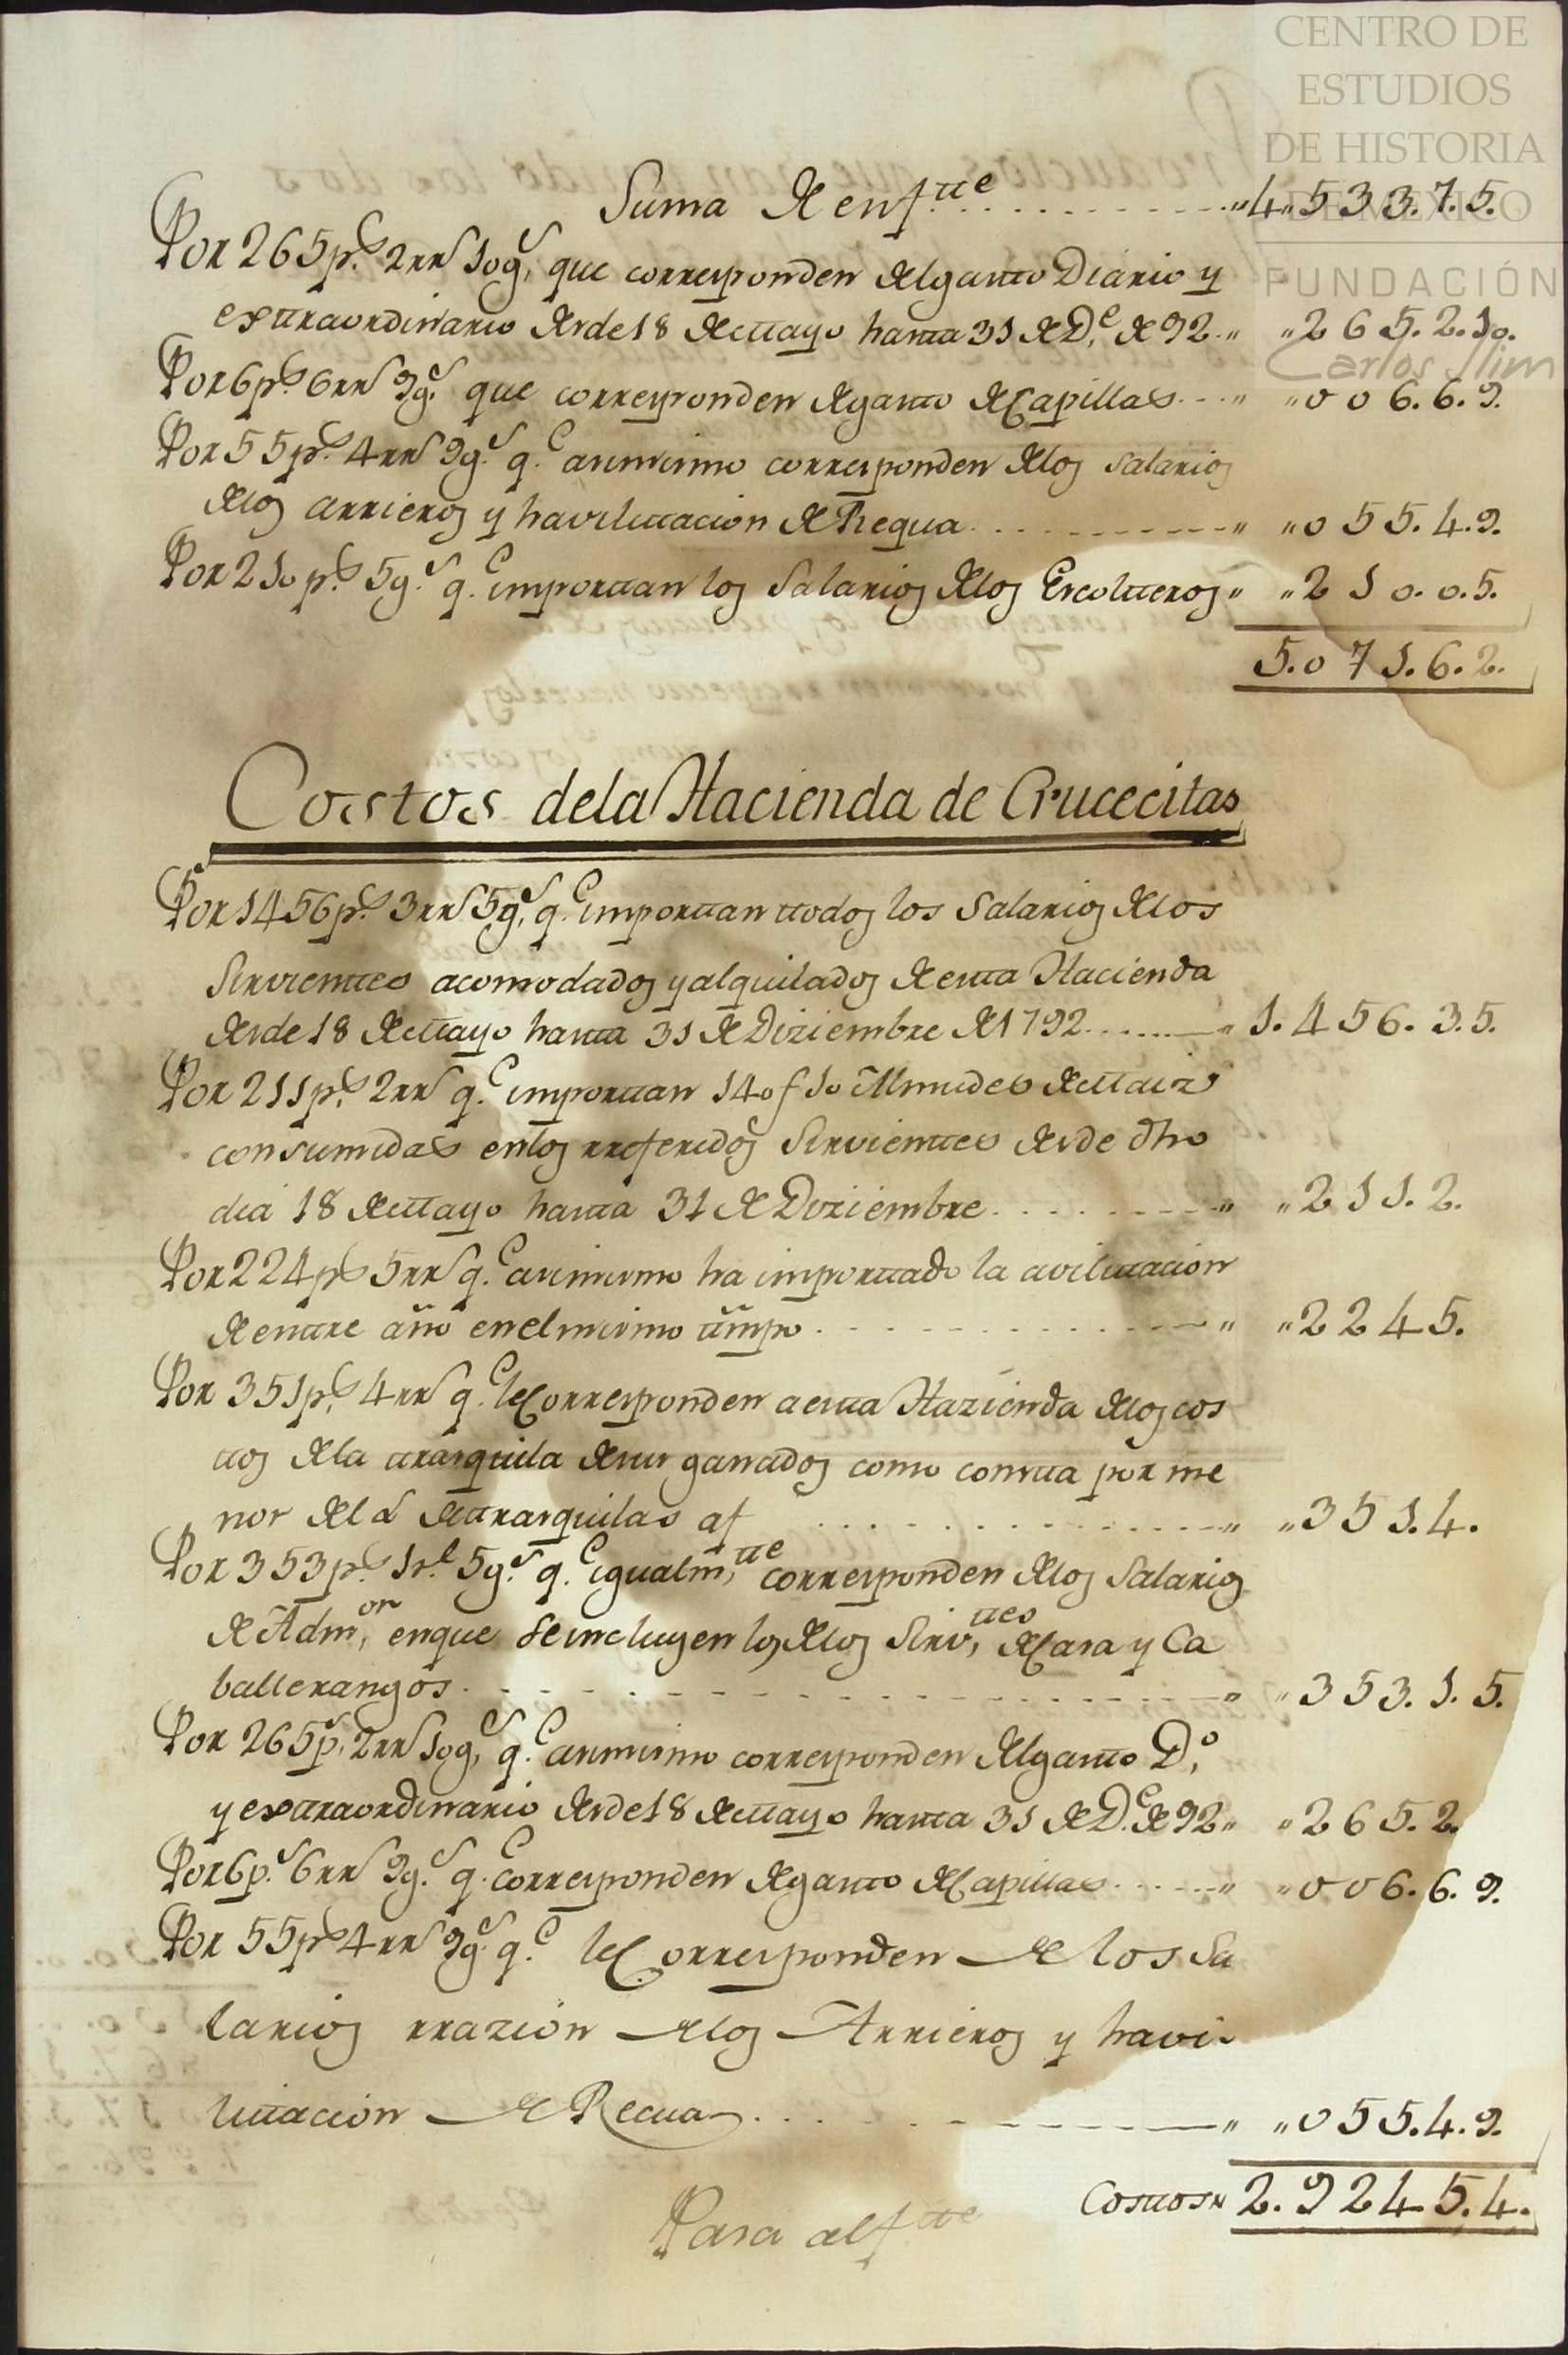 CENTRO DE
ESTUDIOS
DE HISTORIA
DE MÉXICO
FUNDACIÓN
Carlos Slim
Suma de enf.tte ........... „4„533.7.5.
Por 265p.s 2rr.s 10g.s que corresponden del gasto Diario y
extraordinario desde 18 de Mayo hasta 31 de D.e de 92.. „ „265.2.10.
Por 6p.s 6rr.s 9g.s que corresponden de gasto de Capillas... „ „006.6.9.
Por 55p.s 4rr.s 9g.s q.e asimismo corresponden de los salarios
de los arrieros y havilitacion de Requa........... „ „055.4.9.
Por 210p.s 5g.s q.e importan los Salarios de los Escolteros „ „210.0.5.
5.071.6.2.
Costos de la Hacienda de Crucecitas
Por 1456p.s 3rr.s 5g.s q.e importan ttodos los Salarios de los
Sirvientes acomodados y alquilados de esta Hacienda
desde 18 de Mayo hasta 31 de Diziembre de 1792........ „ 1.456.3.5.
Por 211p.s 2rr.s q.e importan 140f 10 Almudes de Maiz
consumidas en los rreferidos Sirvientes desde dho
dia 18 de Mayo hasta 31 de Diziembre.......... „ „211.2.
Por 224p.s 5rr.s q.e asimismo ha importado la avilitacion
de entre año en el mismo ttmpo............... „ „2245.
Por 351p.s 4rr.s q.e le Corresponden a esta Hazienda de los cos
tos de la trasquila de sus ganados como consta por me
nor del d de trasquilas af ............... „ „351.4.
Por 353p.s 1r.l 5g.s q.e igualm.tte corresponden de los Salarios
de Adm.or en que se incluyen los de los Sirv.ttes de Casa y Ca
ballerangos................... „ „353.1.5.
Por 265p.s 2rr.s 10g.s q.e asimismo corresponden del gasto D.o
y extraordinario desde 18 de Mayo hasta 31 de D.e de 92 „ „265.2.
Por 6p.s 6rr.s 9g.s q.e corresponden de gasto de Capillas...... „ „006.6.9.
Por 55p.s 4rr.s 9g.s q.e le Corresponden de los Sa
larios rrazion de los Arrieros y havi-
litacion de Recua............ „ „055.4.9.
Costos 2.9245.4.
Pasa alf.tte